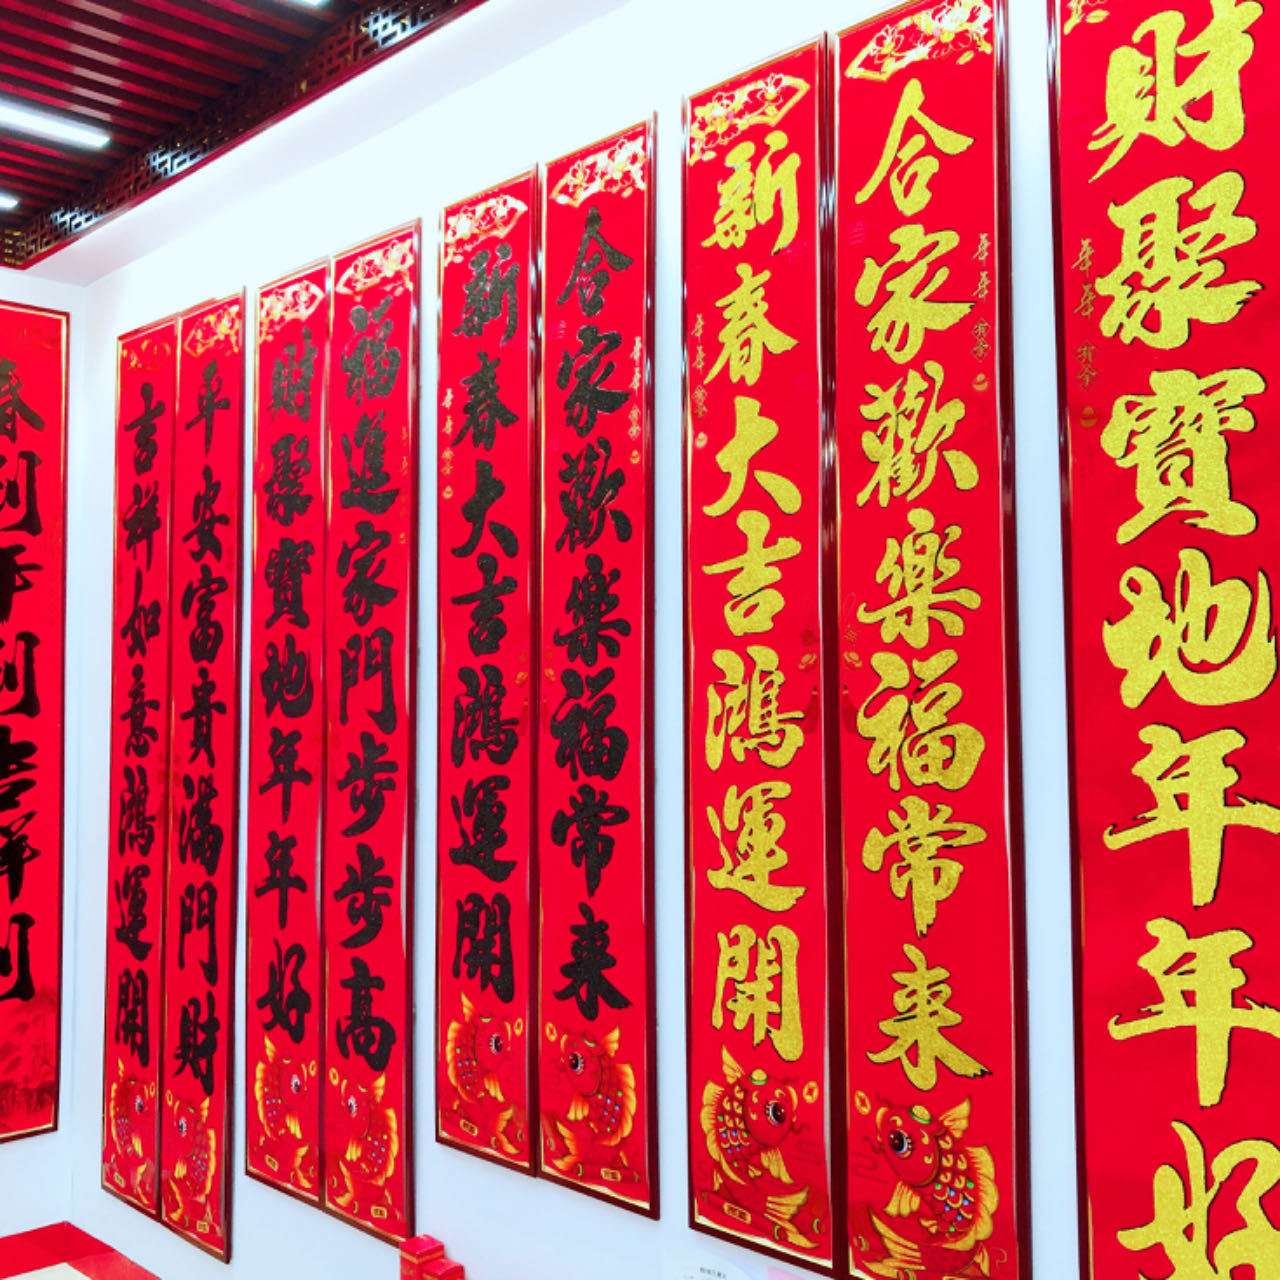 春到年到吉祥到
吉祥如意鴻運開
平安富貴滿門財
財聚寶地年年好
福進家門步步高
新春大吉鴻運開
合家歡樂福常来
新春大吉鴻運開
合家歡樂福常来
財聚寶地年年好